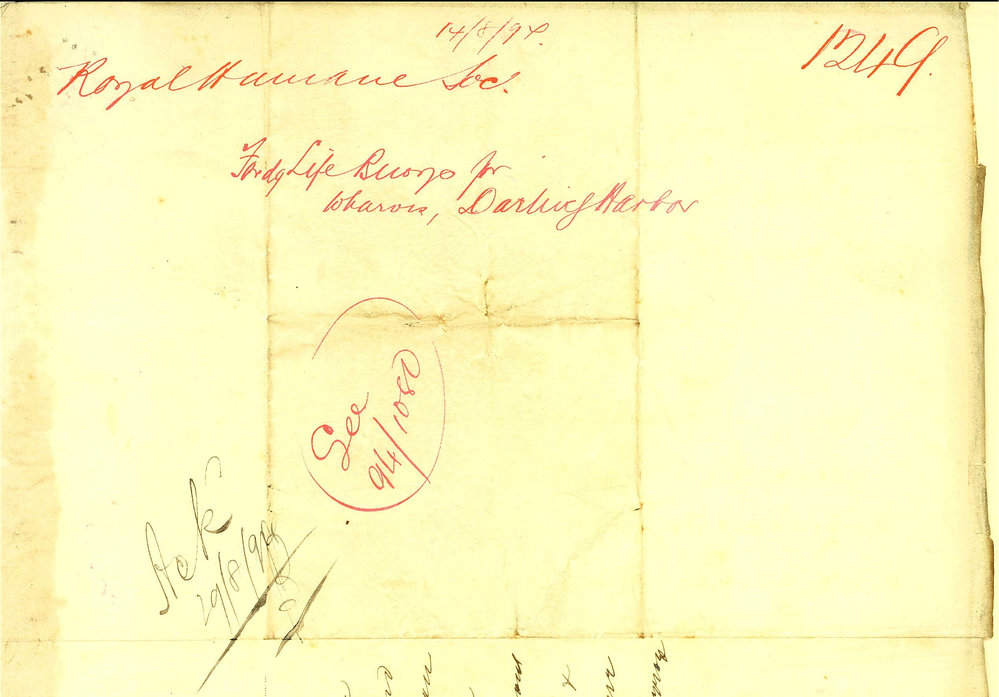 14/8/94.
1249.
Royal Humane Soc.
Fwdg Life Buoys for
Wharves, Darling Harbor
See
94/1080
Ack
29/8/94